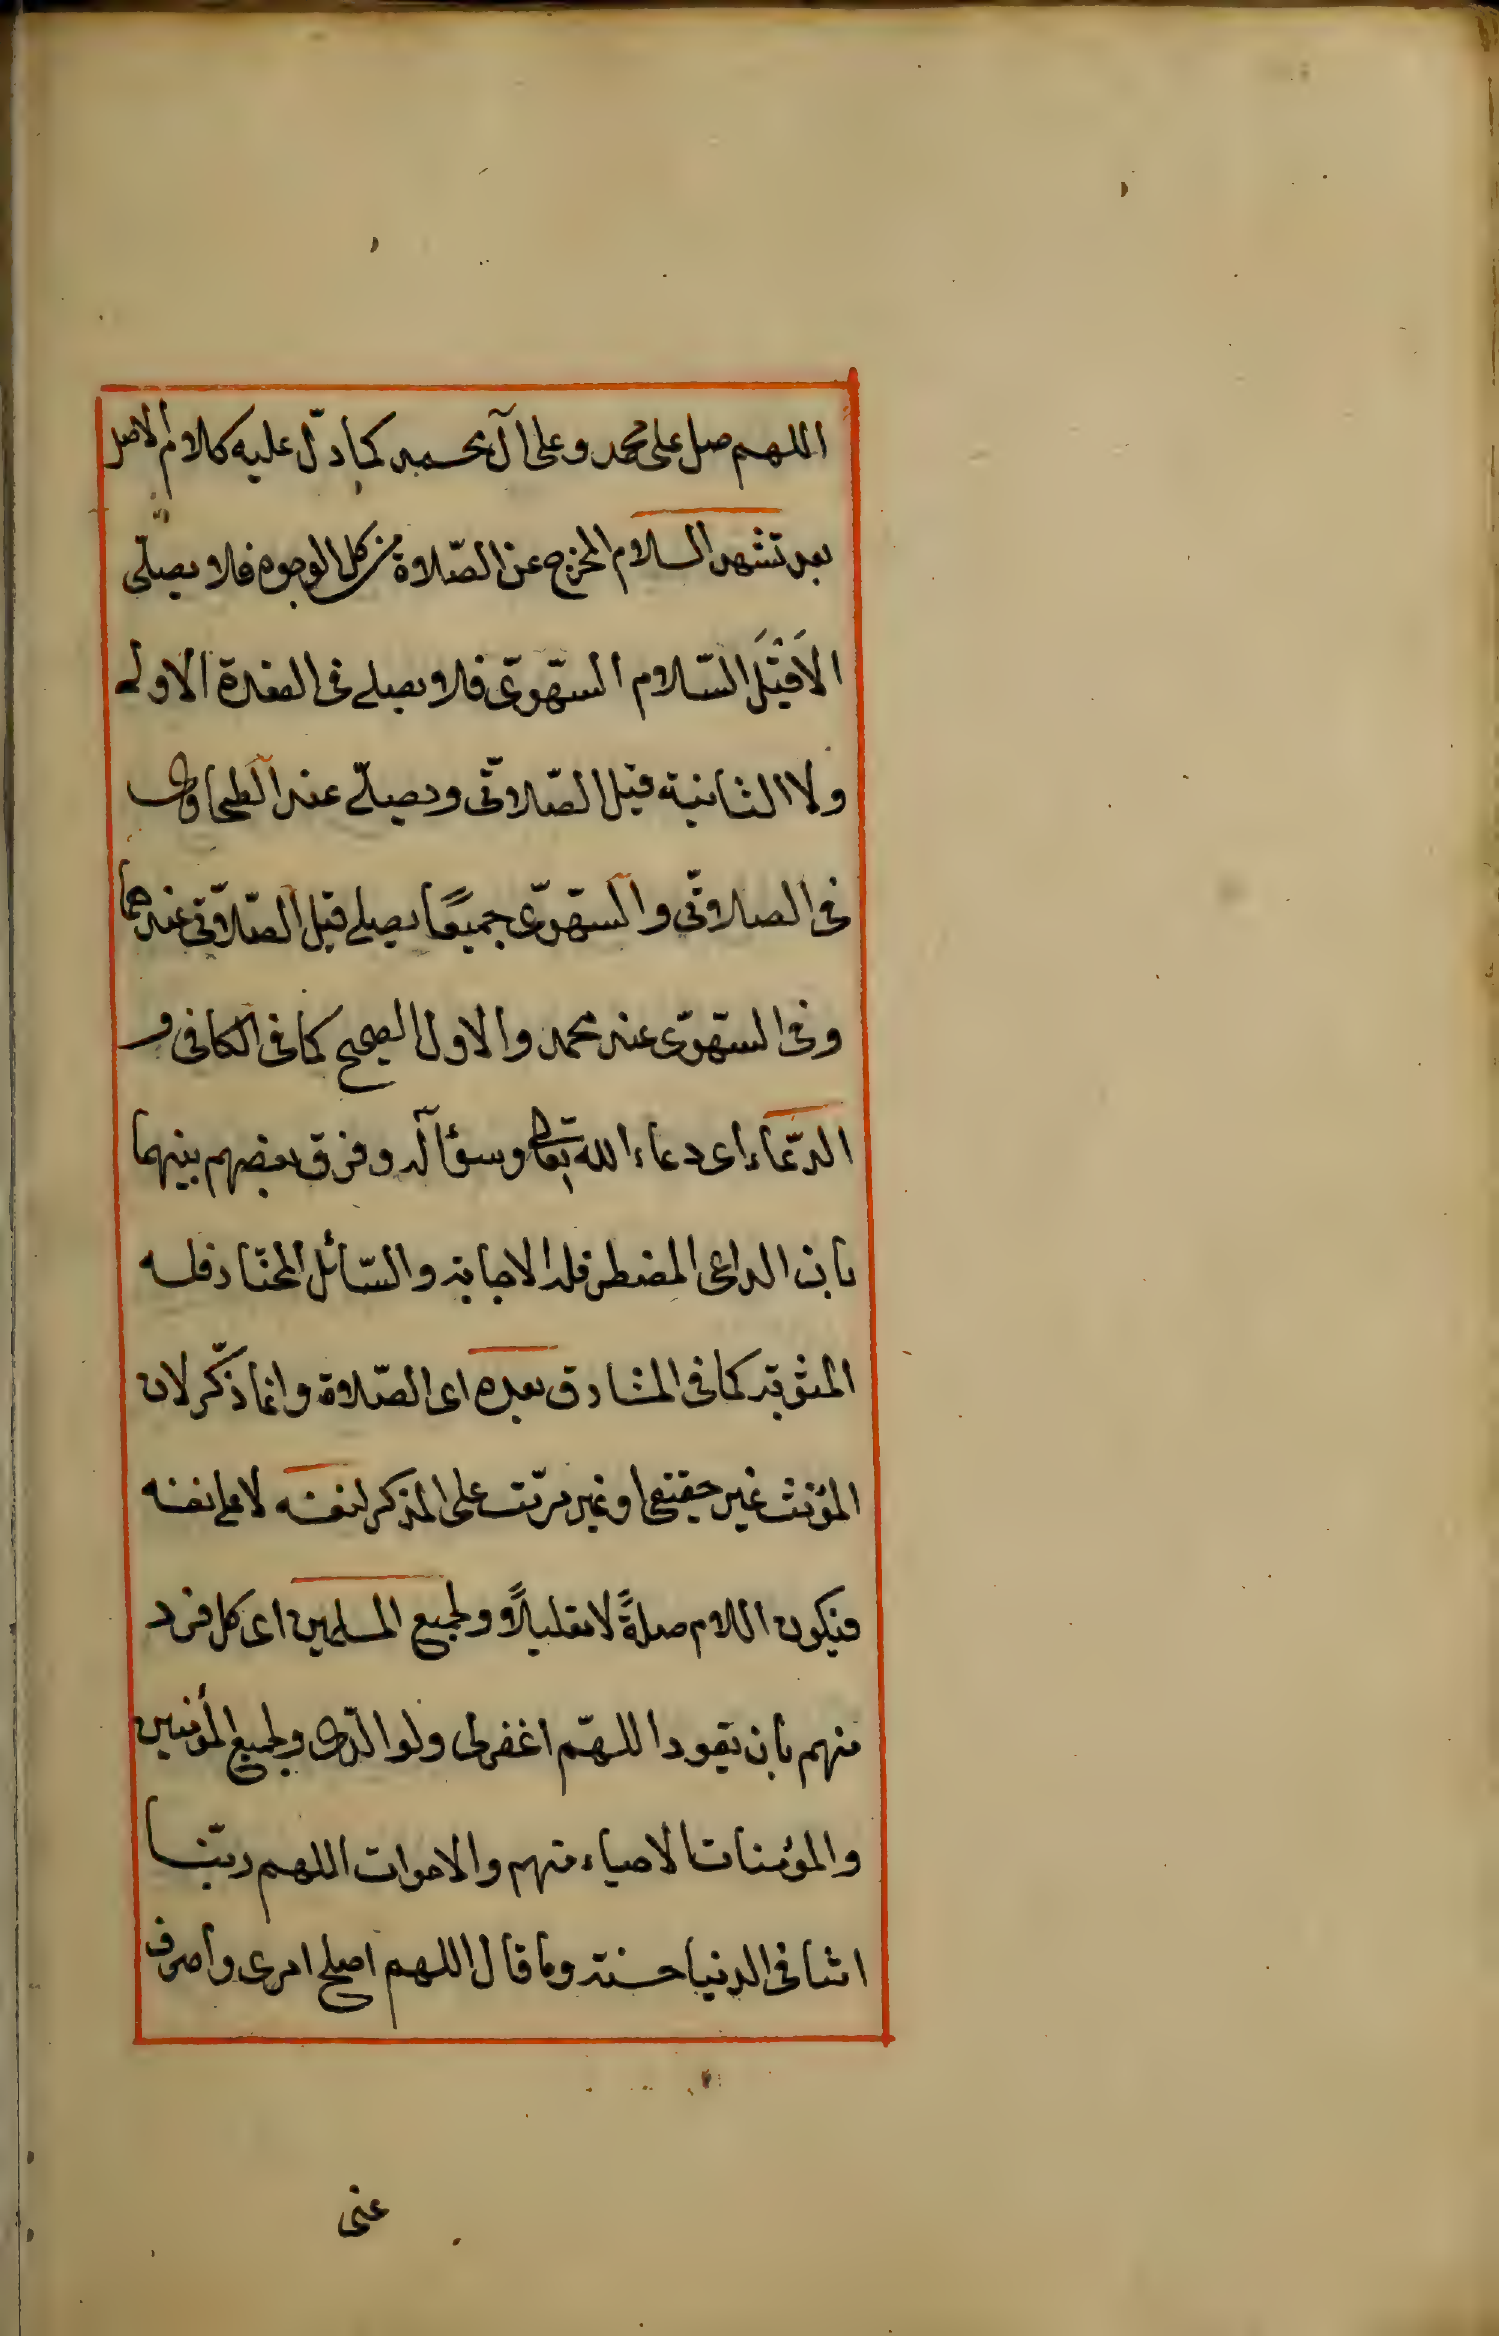 اللهم صل على محمد وعلى آل محمد كما دلّ عليه كلام الاصل
بعد تشهد السلام المخرج عن الصّلاة من كل الوجوه فلا يصلّى
الا قَبْلَ السّلام السّهوّى فلا يصلى فى القعدة الاولى
ولا الثانية قبل الصّلاتّى ويصلّى عند الطحاوى
فى الصلاوتّى والسّهوّى جميعًا يصلى قبل الصّلاوتّى عندهما
وفى السّهوّى عند محمد والاول الصحيح كما فى الكافى و
الدّعاء اى دعاء الله تعالى وسؤاله وفرق بعضهم بينهما
بان الداعى المضطر فله الاجابة والسّائل المختار فله
المثوبة كما فى المشارق بعده اى الصّلاة وانما ذكّر لان
المؤنث غير حقيقى او غير مرتّب على المذكر لنفسه لا على نفسه
فيكون اللام صلةً لا تعليلًا ولجميع المسلمين اى كل فرد
منهم بان يقود اللهمّ اغفر لى ولوالدّى ولجميع المؤمنين
والمؤمنات الاحياء منهم والاموات اللهم ربّنا
اتنا فى الدنيا حسنة وما قال اللهم اصلح امرى واصرف
عنى